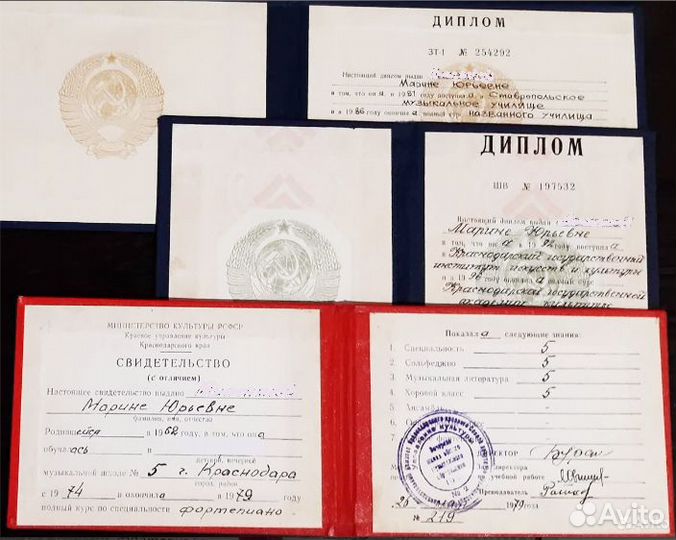 ДИПЛОМ
ЗТ-I № 254292
Настоящий диплом выдан
Марине Юрьевне
в том, что он а в 1981 году поступил а в Ставропольское
музыкальное училище
и в 1986 году окончил а полный курс названного училища
ДИПЛОМ
ШВ № 197532
Настоящий диплом выдан
Марине Юрьевне
в том, что он а в 1992 году поступил а
в Краснодарский государственный
институт искусств и культуры
и в 1996 окончил а полный курс
Краснодарской государственной
академии культуры
МИНИСТЕРСТВО КУЛЬТУРЫ РСФСР
Краевое управление культуры
Краснодарского края
СВИДЕТЕЛЬСТВО
(с отличием)
Настоящее свидетельство выдано
Марине Юрьевне
фамилия, имя, отчество
Родившейся в 1962 году, в том, что он а
обучалась в
детской, вечерней
музыкальной школе № 5 г. Краснодара
город, район
с 1974 и окончила в 1979 году
полный курс по специальности фортепиано
Показал а следующие знания:
1. Специальность 5
2. Сольфеджио 5
3. Музыкальная литература 5
4. Хоровой класс 5
5. Ансамбль -
6.
Директор
директора
учебной работе
Преподаватель
25 мая 1979 г.
№ 219
Avito